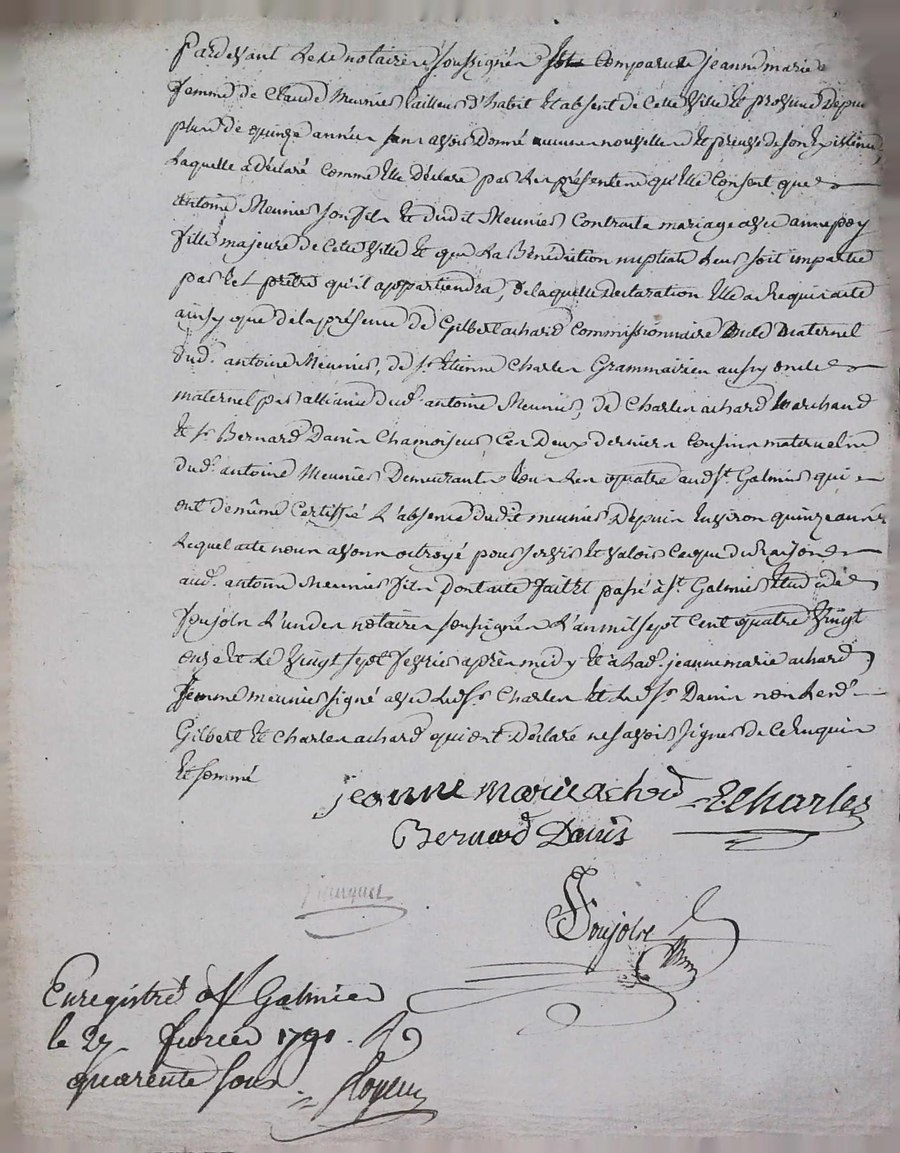 Pardevant les notaires soussignés est comparue jeanne marie
femme de Claude Meunier tailleur d'habit Et absent de Cette Ville Et province Depuis
plus de quinze années sans avoir Donné aucunes nouvelles Et preuve de son Existence,
Laquelle a Déclaré comme Elle Déclare par Les présentes qu'Elle Consent que
Antoine Meunier son fils Et dudit Meunier Contracte mariage avec anne
fille majeure de Cette Ville Et que La Bénédiction nuptiale Leur soit impartie
par tel prêtre qu'il appartiendra, de laquelle Declaration Elle a Requis acte
ainsy que de la présence de Gilbert achard Commissionnaire oncle Maternel
dud. antoine Meunier, de sr. Etienne Charles Grammairien aussy oncle
maternel par alliance dud. antoine Meunier, de Charles achard Marchand
Et sr. Bernard Danis Chamoiseur Ces Deux derniers Cousins maternels
dud. antoine Meunier Demeurants tous Les quatre aud. St. Galmier qui
ont de même Certiffié L'absence dudit meunier Depuis Environ quinze années
Lequel acte nous avons octroyé pour servir Et valoir Ce que de Raison
aud. antoine Meunier fils Dont acte fait Et passé à St. Galmier Etude de
Poujols L'un des notaires soussignés L'an mil sept Cent quatre Vingt
onze Et Le Vingt sept fevrier après midy Et a Lad. jeanne marie achard
femme meunier signé avec Led. sr. Charles Et Led. sr. Danis non Lesd.
Gilbert Et Charles achard qui ont Déclaré ne savoir signer de Ce Enquis
Et sommé
jeanne marie achard E Charles
Bernard Danis
Poujols
Enregistré à St Galmier
le 27 fevrier 1791. R
quarente sous